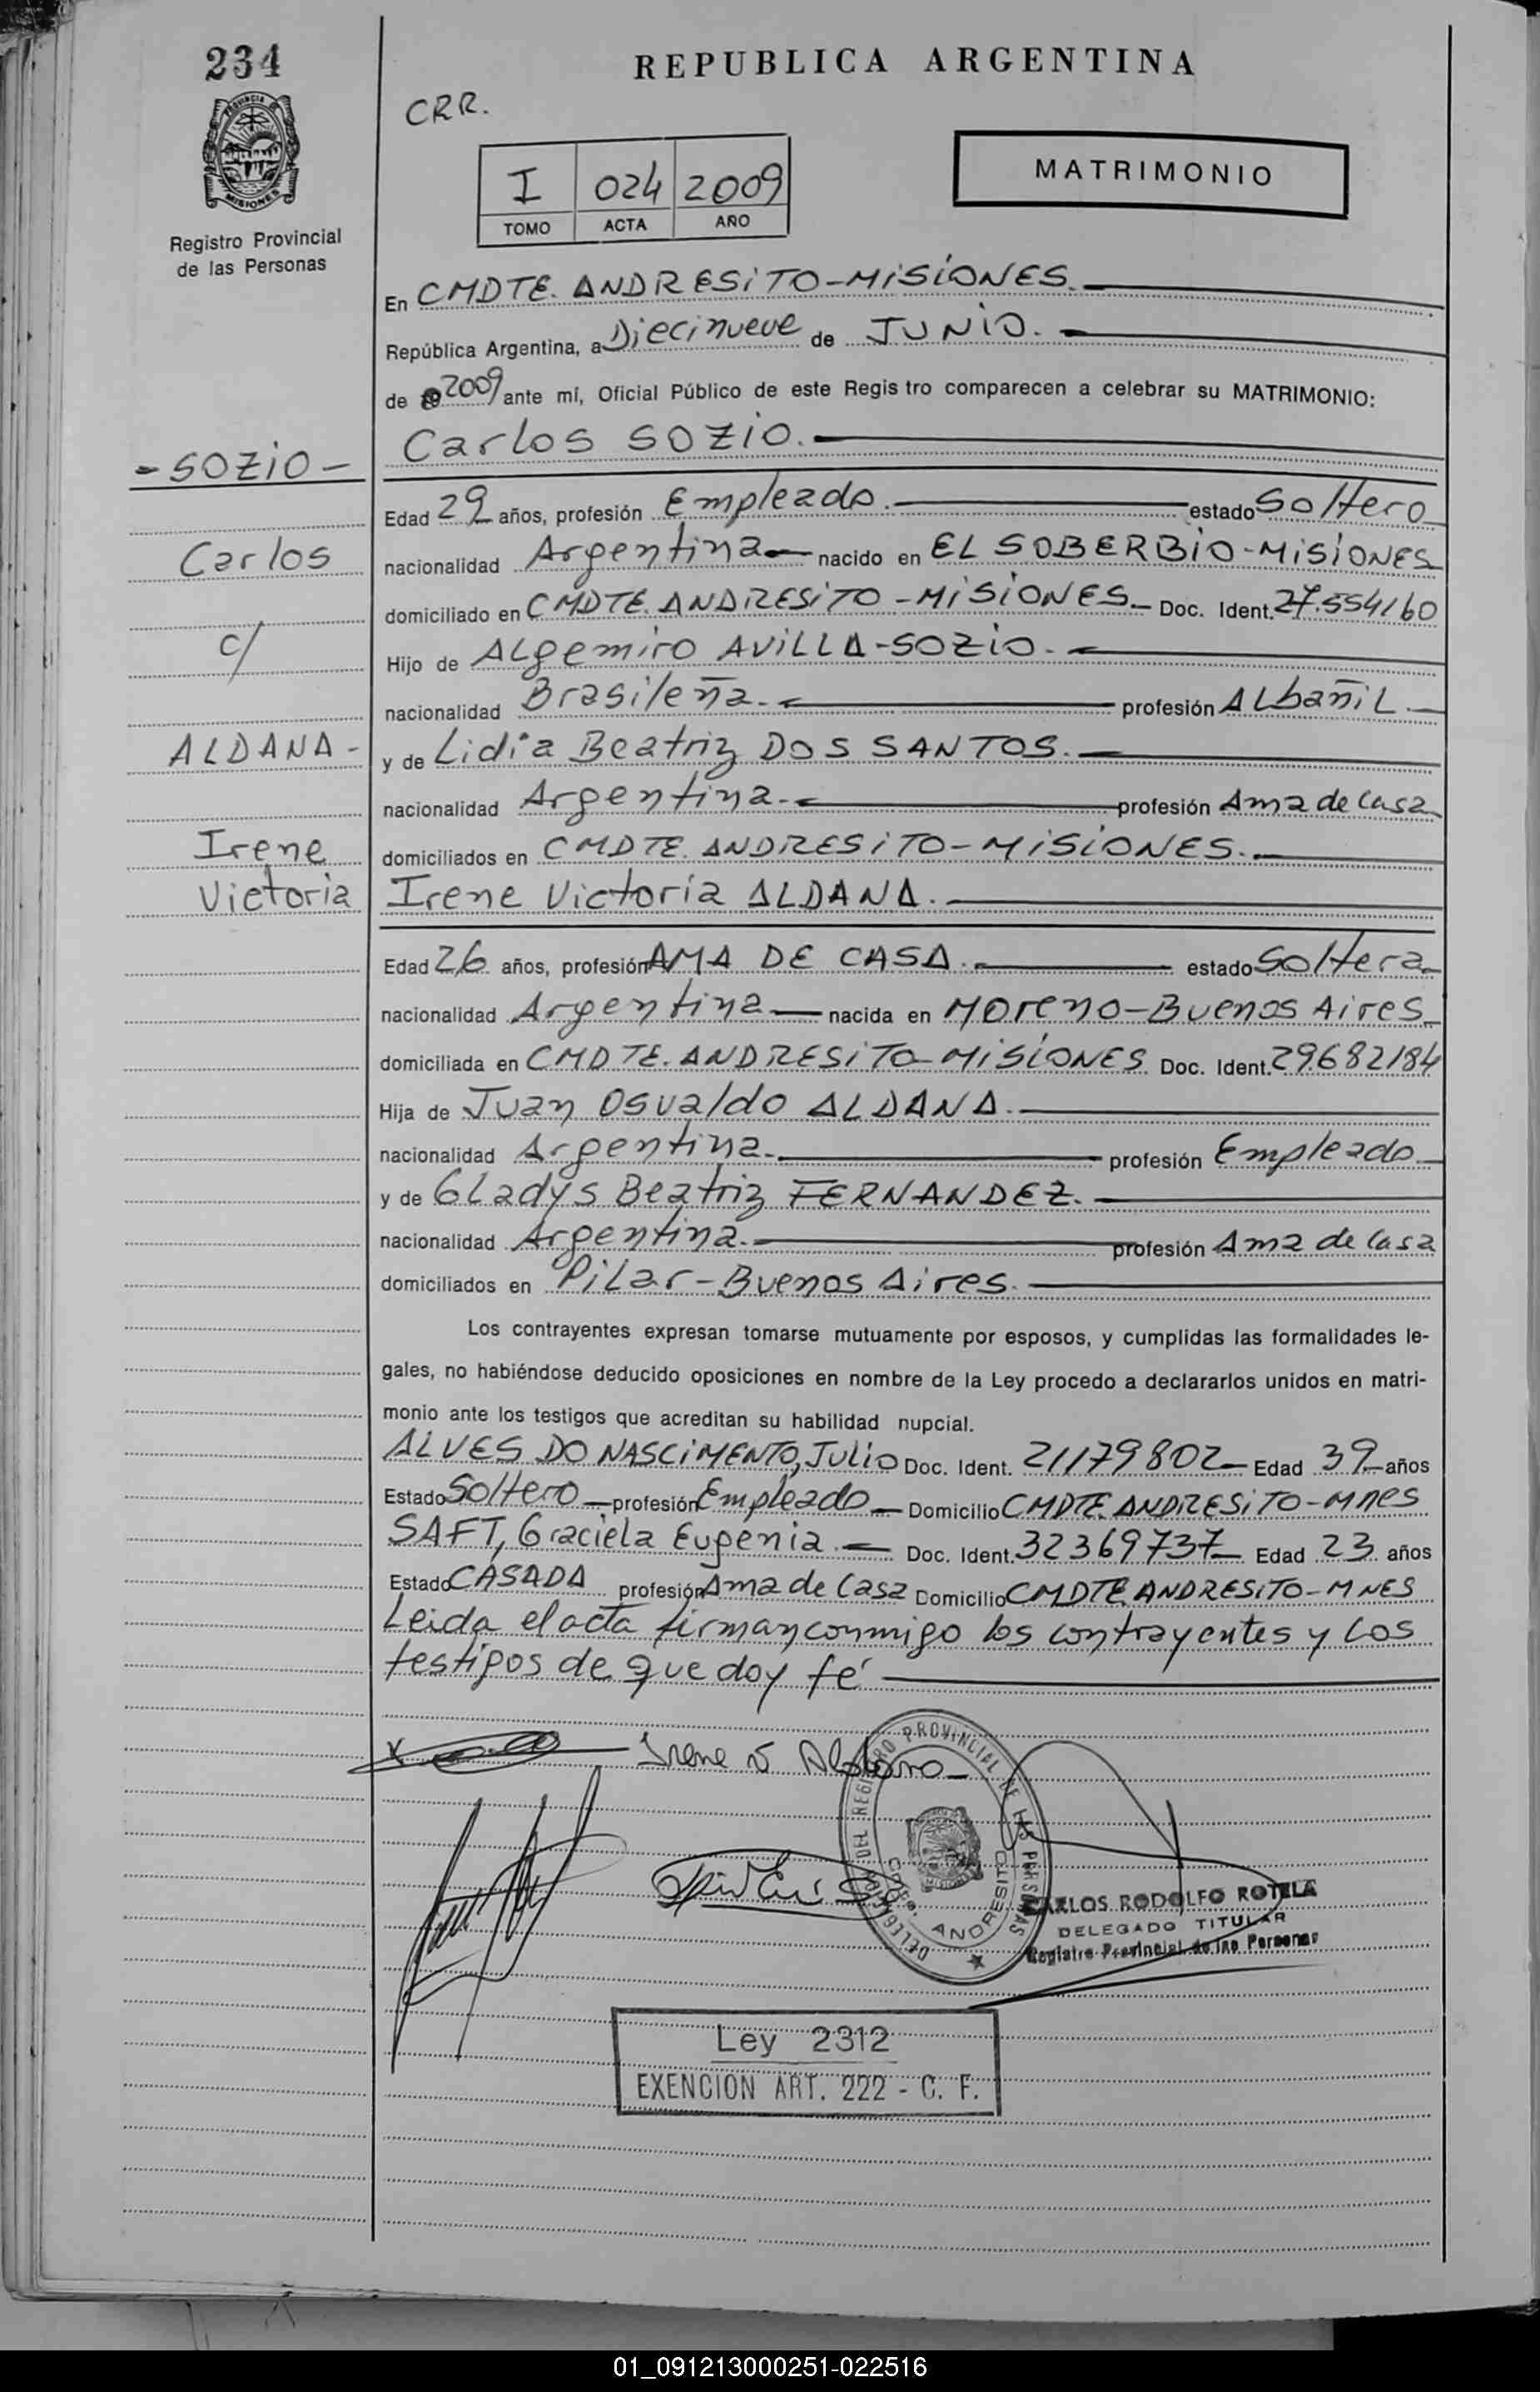 234
REPUBLICA ARGENTINA
CRR.
PROVINCIA DE
MISIONES
Registro Provincial
de las Personas
I 024 2009
TOMO ACTA AÑO
MATRIMONIO
En CMDTE. ANDRESITO-MISIONES.
República Argentina, a Diecinueve de JUNIO.
de 2009 ante mí, Oficial Público de este Regis tro comparecen a celebrar su MATRIMONIO:
Carlos SOZIO.
- SOZIO -
Edad 29 años, profesión Empleado. estado Soltero
Carlos
nacionalidad Argentina nacido en EL SOBERBIO-MISIONES
domiciliado en CMDTE. ANDRESITO - MISIONES. Doc. Ident. 27.554160
c/
Hijo de ALgemiro AVILLA-SOZIO.
nacionalidad Brasileña. profesión ALbañiL.
ALDANA-
y de Lidia Beatriz DOS SANTOS.
nacionalidad Argentina. profesión Ama de Casa
Irene
domiciliados en CMDTE. ANDRESITO-MISIONES.
Victoria
Irene Victoria ALDANA.
Edad 26 años, profesión AMA DE CASA. estado Soltera
nacionalidad Argentina nacida en Moreno-Buenos Aires
domiciliada en CMDTE. ANDRESITO-MISIONES Doc. Ident. 29682184
Hija de Juan Osvaldo ALDANA.
nacionalidad Argentina. profesión Empleado
y de GLadys Beatriz FERNANDEZ.
nacionalidad Argentina. profesión Ama de Casa
domiciliados en PiLar-Buenos Aires.
Los contrayentes expresan tomarse mutuamente por esposos, y cumplidas las formalidades le-
gales, no habiéndose deducido oposiciones en nombre de la Ley procedo a declararlos unidos en matri-
monio ante los testigos que acreditan su habilidad nupcial.
ALVES DO NASCIMENTO, JULIO Doc. Ident. 21179802 Edad 39 años
Estado Soltero profesión Empleado Domicilio CMDTE. ANDRESITO-Mnes
SAFT, Graciela Eugenia. Doc. Ident. 32369737 Edad 23 años
Estado CASADA profesión Ama de Casa Domicilio CMDTE. ANDRESITO-MNES
Leida el acta firman conmigo los contrayentes y los
testigos de que doy fé
Irene V Aldana
DELEGACION DEL REGISTRO PROVINCIAL DE LAS PERSONAS
CMDTE. ANDRESITO
CARLOS RODOLFO ROTELA
DELEGADO TITULAR
Registro Provincial de las Personas
Ley 2312
EXENCION ART. 222 - C. F.
01_091213000251-022516